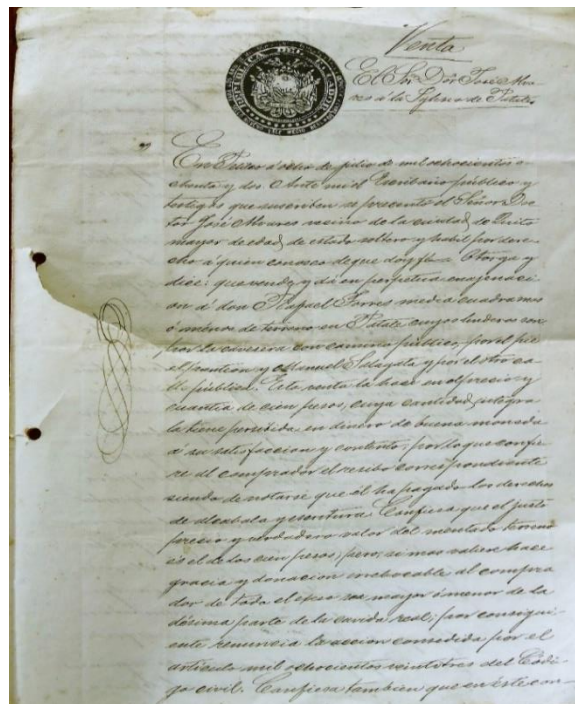 Venta
El Sor. Dor. José Alva
res á la Iglesia de Patate
REPUBLICA DEL ECUADOR
En Pelileo á ocho de julio de mil ochocientos o
chenta y dos. Ante mi el Escribano público y
testigos que suscriben se presentó el Señor Doc
tor José Alvares vecino de la ciudad de Quito
mayor de edad, de estado soltero y habil por dere
cho á quien conosco de que doy fé Otorga y
dice: que vende y dá en perpetua enagenaci
on á don Rafael Torres media cuadra mas
ó menos de terreno en Patate cuyos linderos son
por la cavesera con camino público, por el pie
y Manuel Salagata y por el otro ca
lle pública. Esta venta la hase en el presio y
cuantia de cien pesos, cuya cantidad integra
la tiene persibida en dinero de buena moneda
a su satisfaccion y contento; por lo que confie
re al comprador el resibo correspondiente
siendo de notarse que él ha pagado los derechos
de alcabala y escritura. Confiesa que el justo
presio y verdadero valor del mentado terreno
és el de los cien pesos, pero, si mas valiese hace
gracia y donacion irebocable al compra
dor de todo el exeso sea mayor ó menor de la
désima parte de la cavida real; por consigui
ente renuncia la accion consedida por el
artículo mil ochocientos veintitres del Códi
go civil. Confiesa tambien que en éste con-